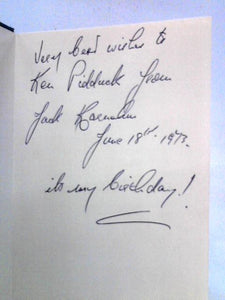 Very best wishes to
Ken Pidduck from
Jack
June 18th. 1973.
its my birthday!